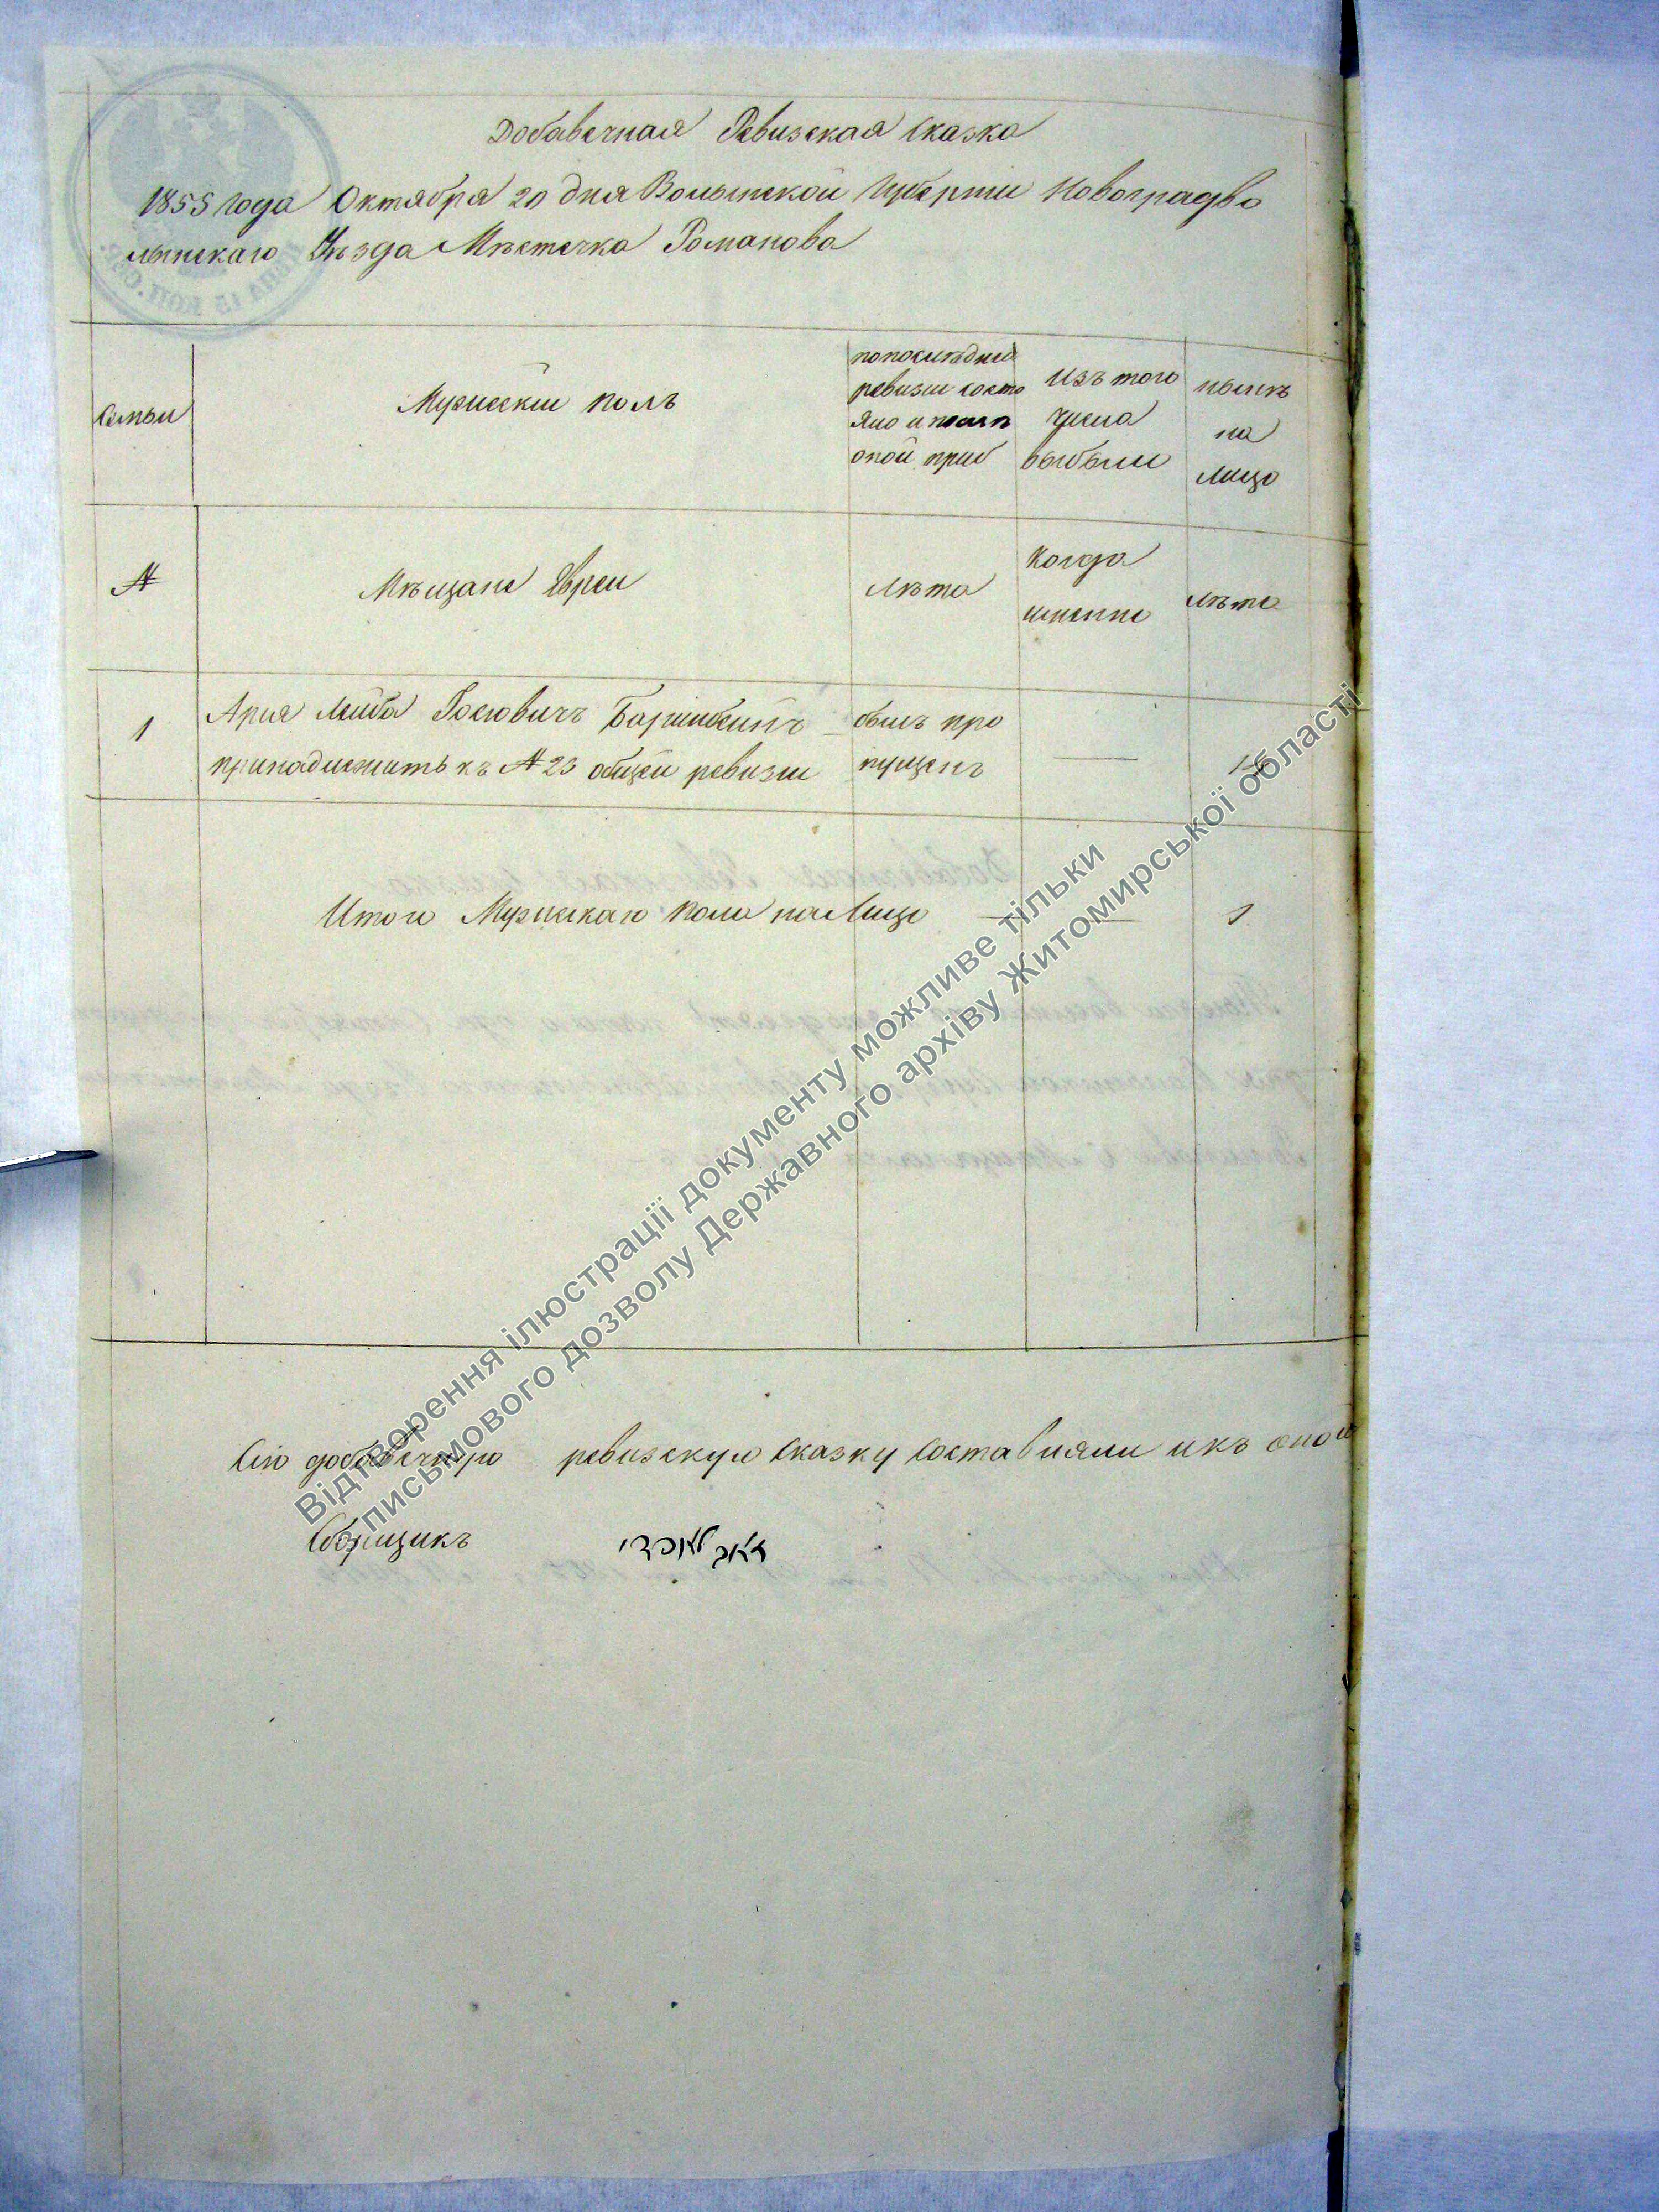 Добавечная Ревизская Сказка
1855 года Октября 20 дня Волынской Губернии Новоградво
лынскаго Уѣзда Мѣстечка Романова
Семьи
Мужескій полъ
попослѣдней
ревизіи состо
яло и послѣ
оной приб
Изъ того
числа
выбыли
нынѣ
на
лицо
№
Мѣщане Евреи
Лѣта
Когда
именно
Лѣта
1
Ария Лейба Іосіовичъ
принадлежитъ къ № 23 общей ревизіи
былъ про
пущенъ
Итого Мужескаго пола на Лицо
1
Сію добавечную ревизскую Сказку Составляли икъ оной
Сборщикъ
Відтворення ілюстрації документу можливе тільки
з письмового дозволу Державного архіву Житомирської області